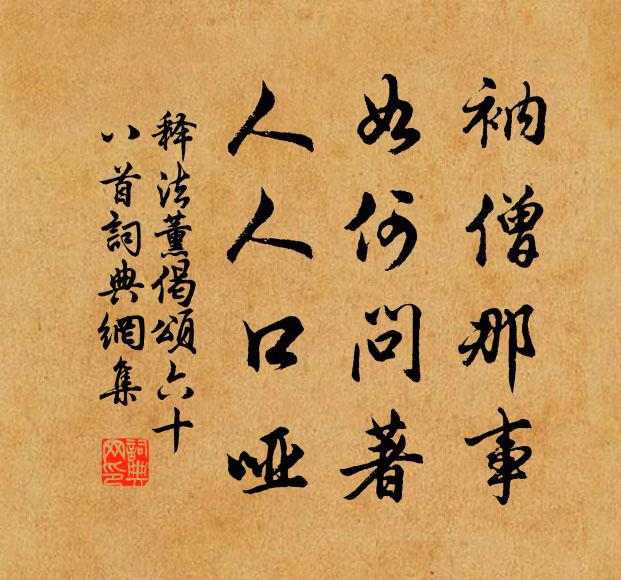 衲僧那事
如何問著
人人口哑
释法薰偈頌六十
八首詞典網集
詞典
网印